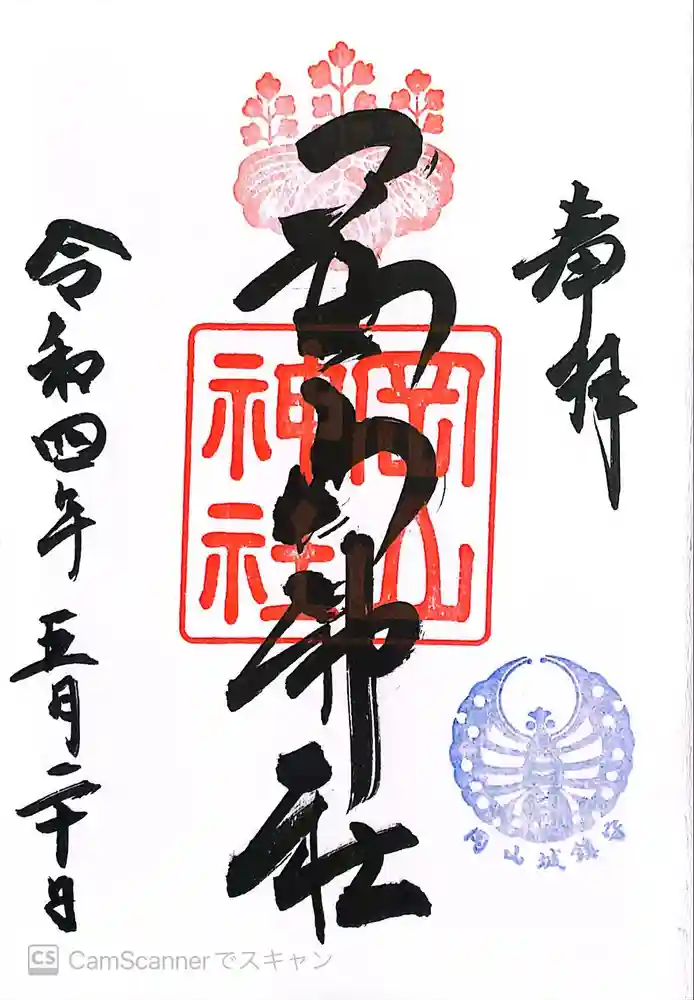 奉拝
岡山神社
岡山
神社
山城鎮
令和四年 五月二十日
CS CamScannerでスキャン